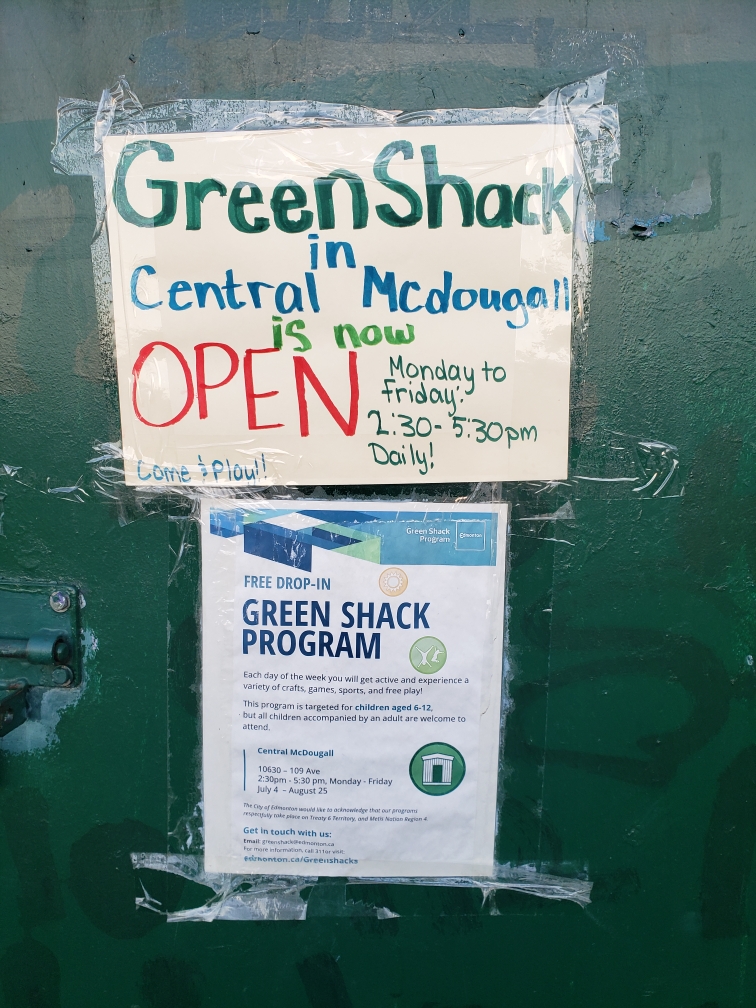 Green Shack
in
Central Mcdougall
is now
OPEN
Monday to
friday:
2:30-5:30pm
Daily!
Come & Play!!
Green Shack
Program
Edmonton
FREE DROP-IN
GREEN SHACK
PROGRAM
Each day of the week you will get active and experience a
variety of crafts, games, sports, and free play!
This program is targeted for children aged 6-12,
but all children accompanied by an adult are welcome to
attend.
Central McDougall
10630 – 109 Ave
2:30pm - 5:30 pm, Monday - Friday
July 4 – August 25
The City of Edmonton would like to acknowledge that our programs
respectfully take place on Treaty 6 Territory, and Metis Nation Region 4.
Get in touch with us:
Email: greenshack@edmonton.ca
For more information, call 311or visit:
edmonton.ca/Greenshacks